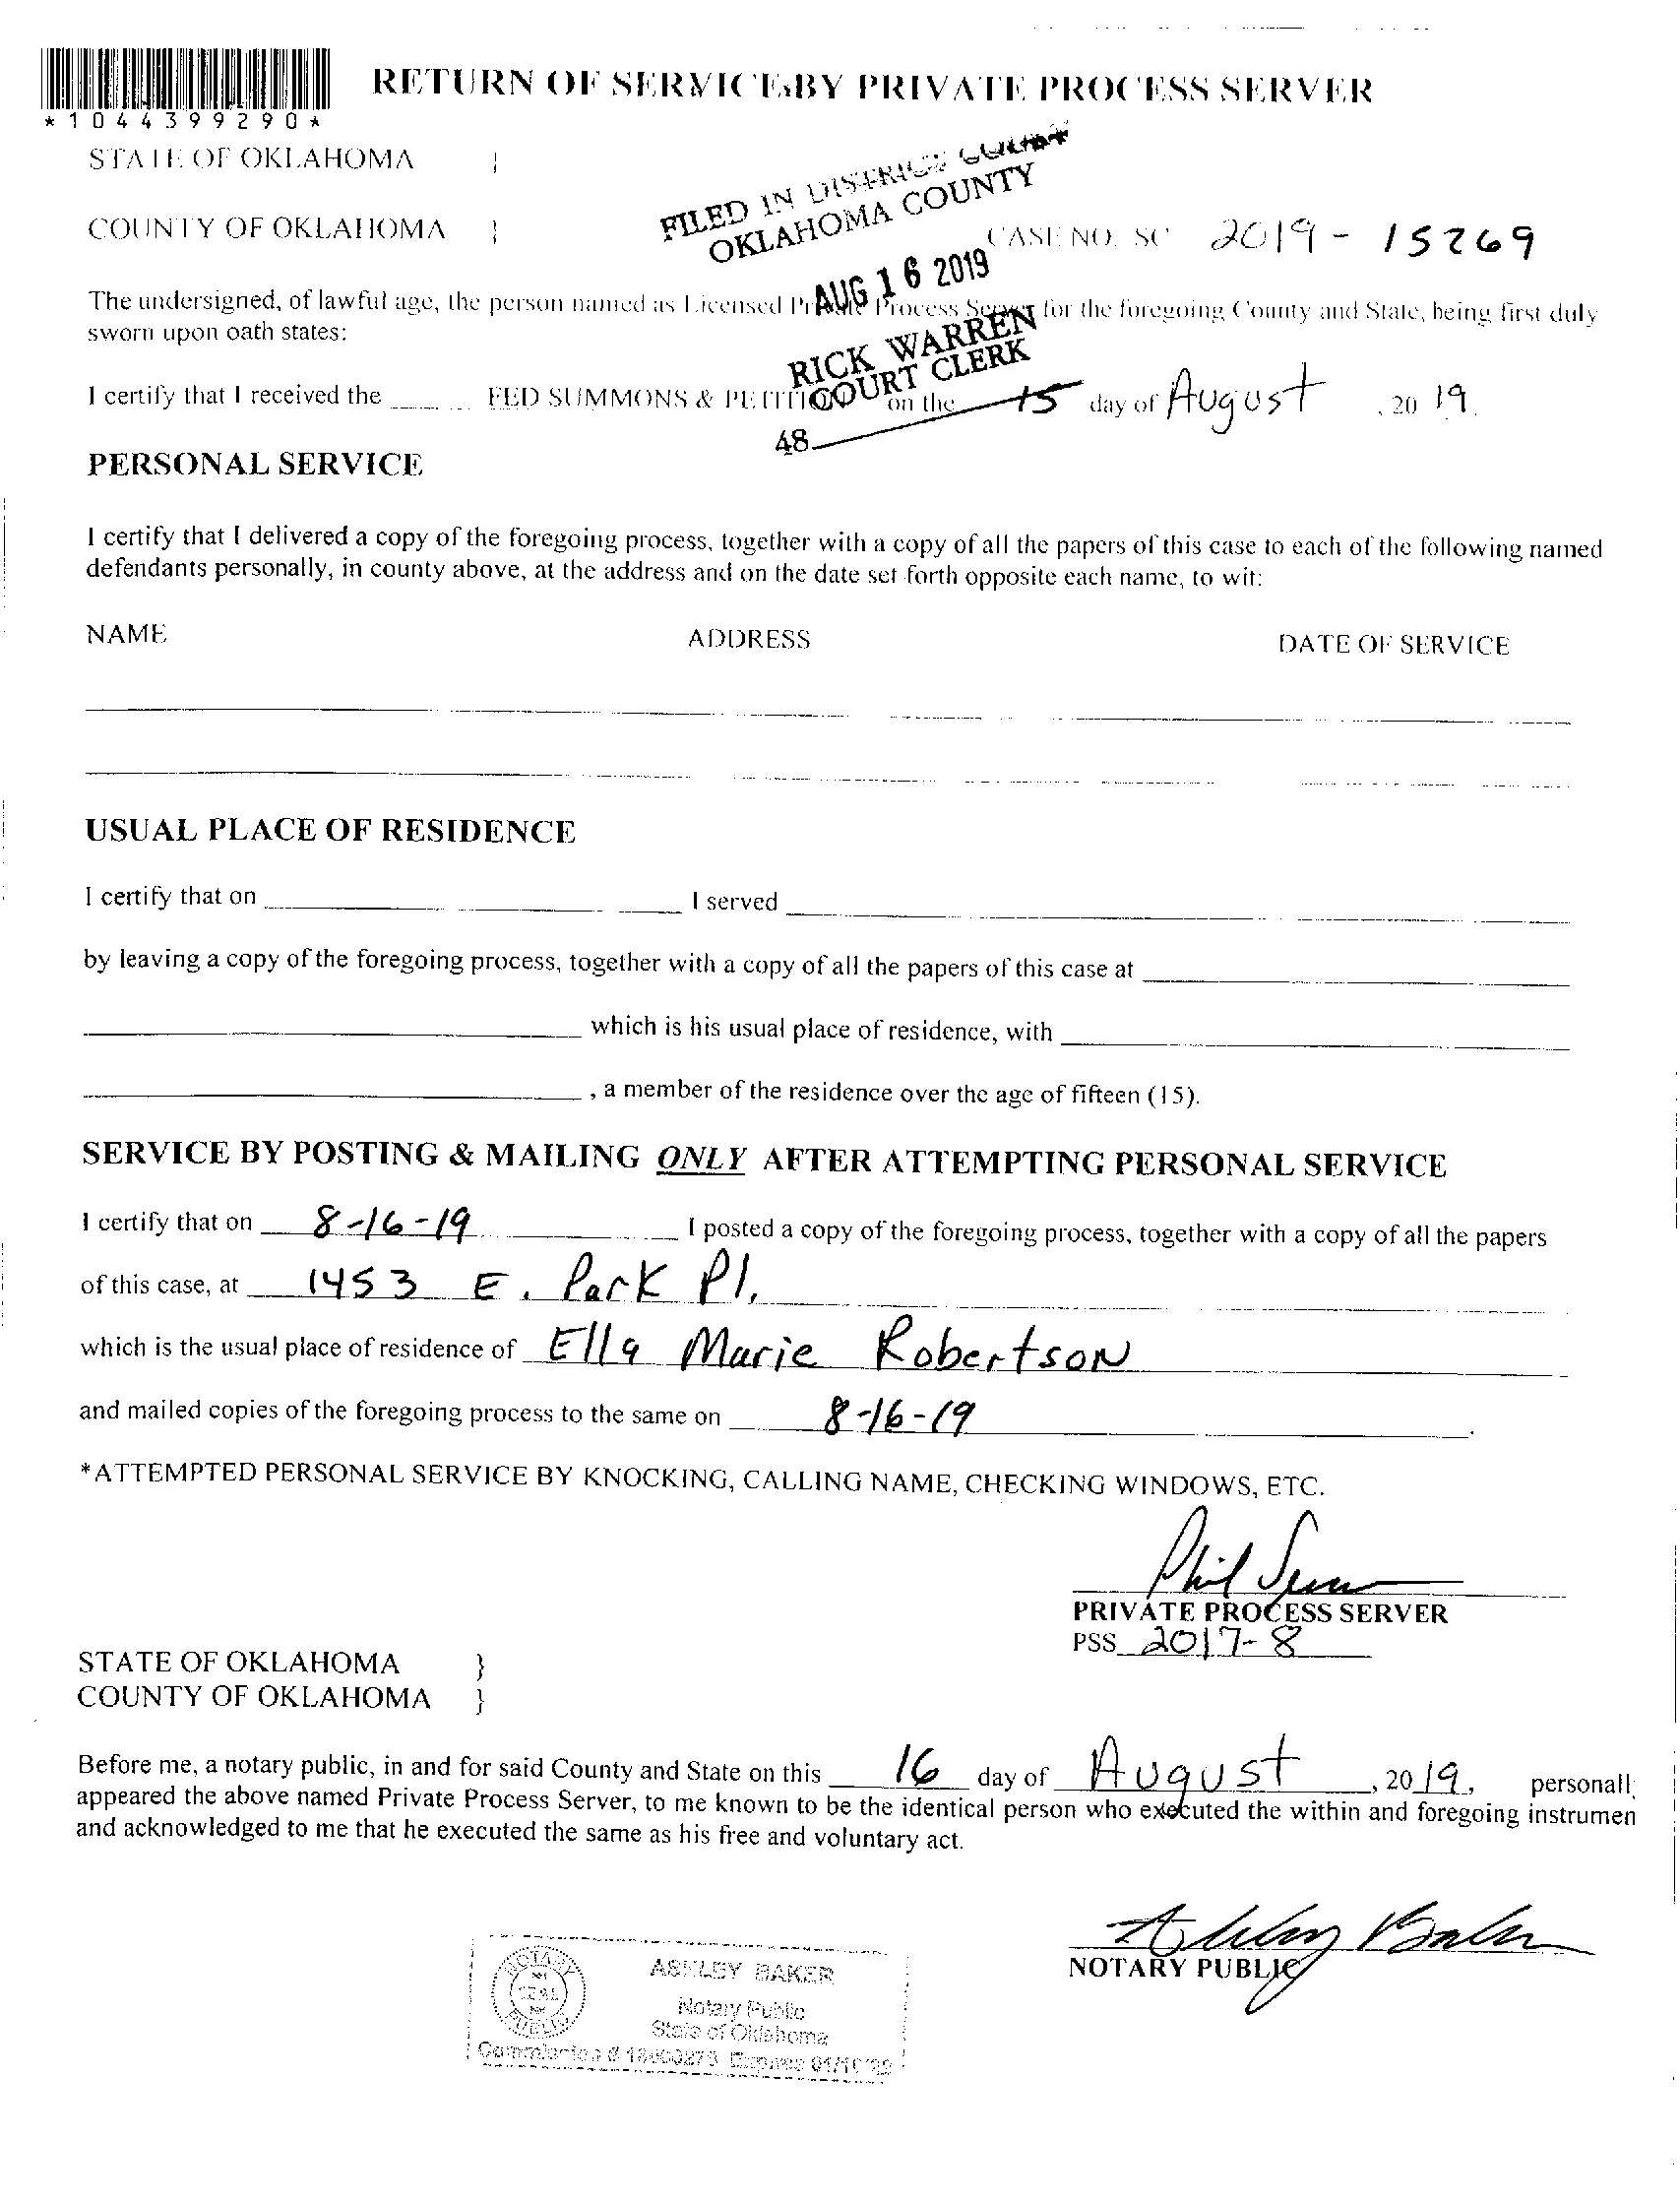 RETURN OF SERVICE BY PRIVATE PROCESS SERVER
*1044399290*
STATE OF OKLAHOMA }
FILED IN DISTRICT COURT
OKLAHOMA COUNTY
COUNTY OF OKLAHOMA }
CASE NO. SC 2019-15269
AUG 16 2019
The undersigned, of lawful age, the person named as Licensed Private Process Server for the foregoing County and State, being first duly
sworn upon oath states:
RICK WARREN
COURT CLERK
I certify that I received the FED SUMMONS & PETITION on the 15 day of August, 2019.
48
PERSONAL SERVICE
I certify that I delivered a copy of the foregoing process, together with a copy of all the papers of this case to each of the following named
defendants personally, in county above, at the address and on the date set forth opposite each name, to wit:
NAME ADDRESS DATE OF SERVICE
USUAL PLACE OF RESIDENCE
I certify that on I served
by leaving a copy of the foregoing process, together with a copy of all the papers of this case at
which is his usual place of residence, with
, a member of the residence over the age of fifteen (15).
SERVICE BY POSTING & MAILING ONLY AFTER ATTEMPTING PERSONAL SERVICE
I certify that on 8-16-19 I posted a copy of the foregoing process, together with a copy of all the papers
of this case, at 1453 E. Park Pl.
which is the usual place of residence of Ella Marie Robertson
and mailed copies of the foregoing process to the same on 8-16-19.
*ATTEMPTED PERSONAL SERVICE BY KNOCKING, CALLING NAME, CHECKING WINDOWS, ETC.
Phil
PRIVATE PROCESS SERVER
PSS 2017-8
STATE OF OKLAHOMA }
COUNTY OF OKLAHOMA }
Before me, a notary public, in and for said County and State on this 16 day of August, 2019, personall
appeared the above named Private Process Server, to me known to be the identical person who executed the within and foregoing instrumen
and acknowledged to me that he executed the same as his free and voluntary act.
Ashley Baker
NOTARY PUBLIC
ASHLEY BAKER
Notary Public
State of Oklahoma
Commission # Expires
NOTARY PUBLIC